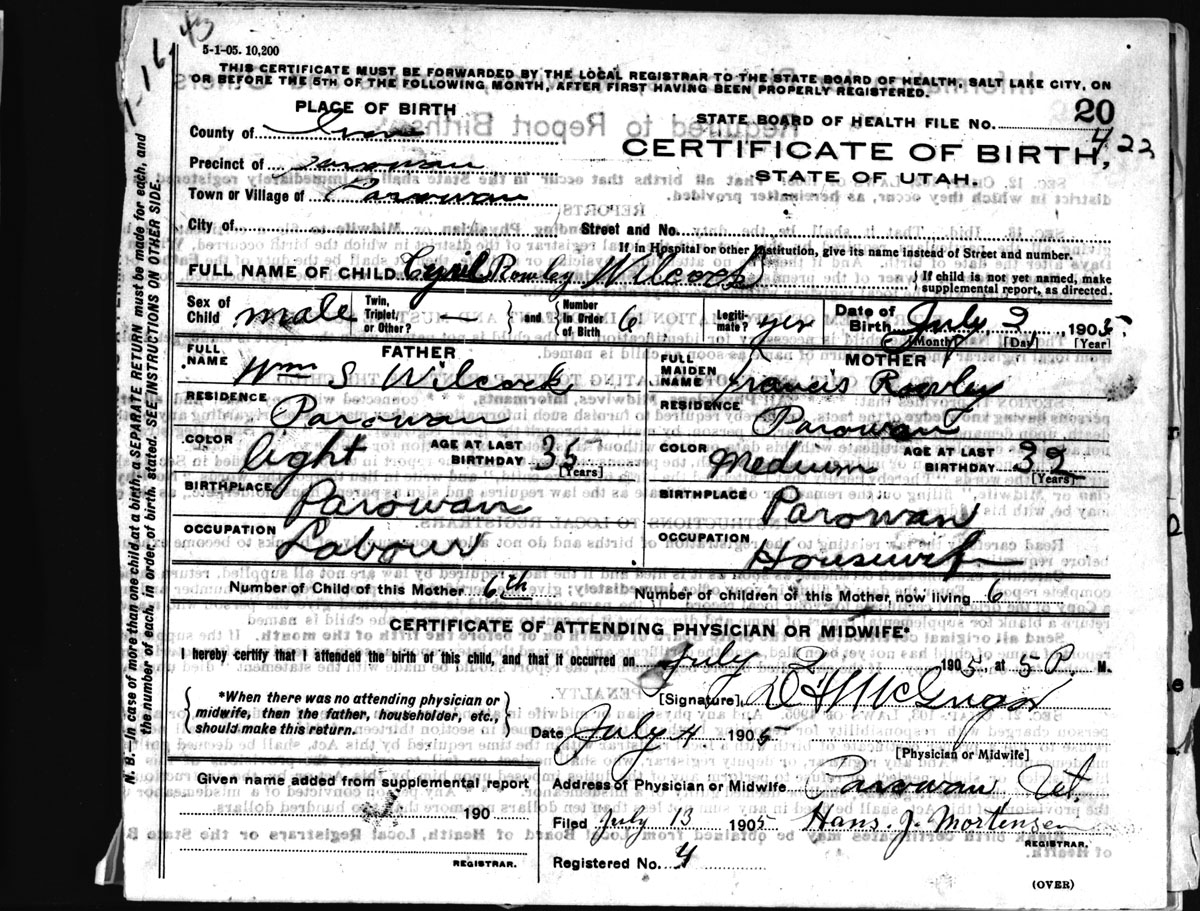 43
5-1-05. 10,200
THIS CERTIFICATE MUST BE FORWARDED BY THE LOCAL REGISTRAR TO THE STATE BOARD OF HEALTH, SALT LAKE CITY, ON
OR BEFORE THE 5TH OF THE FOLLOWING MONTH, AFTER FIRST HAVING BEEN PROPERLY REGISTERED.
PLACE OF BIRTH
STATE BOARD OF HEALTH FILE NO. 20
422
County of Iron
CERTIFICATE OF BIRTH,
Precinct of Parowan
STATE OF UTAH.
Town or Village of Parowan
City of Street and No.
If in Hospital or other Institution, give its name instead of Street and number.
FULL NAME OF CHILD Cyril Rowley Wilcock
If child is not yet named, make supplemental report, as directed.
Sex of Child male Twin, Triplet, or Other? — and Number in Order of Birth 6 Legiti-mate? yes Date of Birth July 2, 1905
[Month] [Day] [Year]
FATHER
MOTHER
FULL NAME Wm S Wilcock
FULL MAIDEN NAME Francis Rowley
RESIDENCE Parowan
RESIDENCE Parowan
COLOR light AGE AT LAST BIRTHDAY 35 [Years]
COLOR Medium AGE AT LAST BIRTHDAY 32 [Years]
BIRTHPLACE Parowan
BIRTHPLACE Parowan
OCCUPATION Labour
OCCUPATION Housewif
Number of Child of this Mother 6th Number of children of this Mother, now living 6
CERTIFICATE OF ATTENDING PHYSICIAN OR MIDWIFE*
I hereby certify that I attended the birth of this child, and that it occurred on July 2 1905, at 5 P. M.
*When there was no attending physician or
midwife, then the father, householder, etc.,
should make this return.
[Signature] McGregor
Date July 4 1905
[Physician or Midwife]
Given name added from supplemental report
190
REGISTRAR.
Address of Physician or Midwife Parowan Ut.
Filed July 13 1905 Hans J. Mortensen
REGISTRAR.
Registered No. 4
(OVER)
N. B.—In case of more than one child at a birth, a SEPARATE RETURN must be made for each, and
the number of each, in order, of birth, stated. SEE INSTRUCTIONS ON OTHER SIDE.